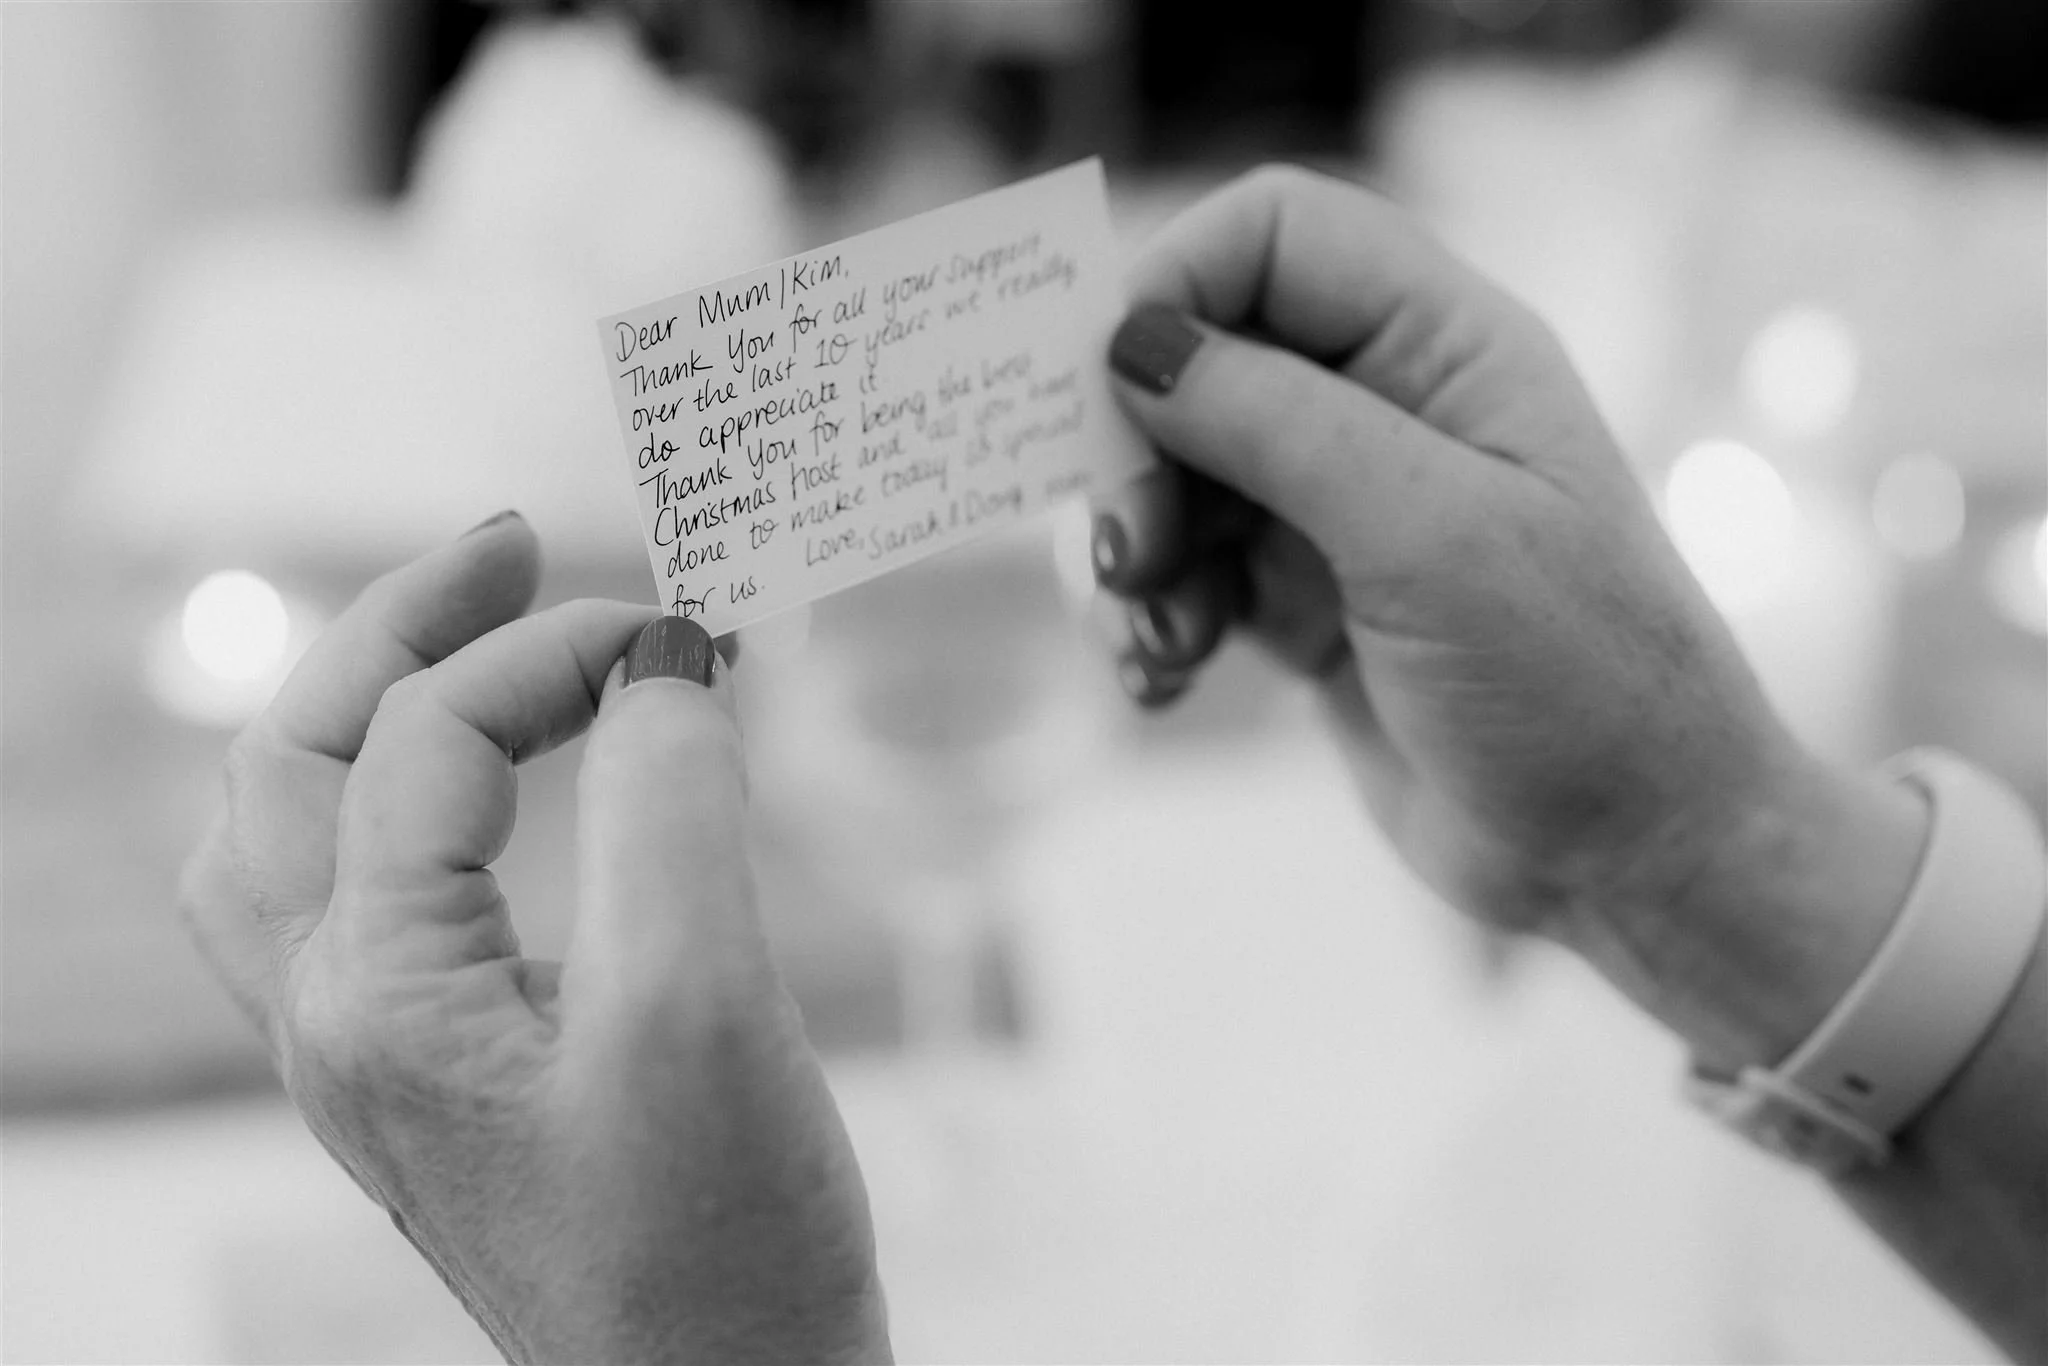 Dear Mum/Kim,
Thank You for all your support
over the last 10 years we really
do appreciate it.
Thank You for being the best
Christmas host and all you have
done to make today so special
for us. Love, Sarah & Doug xxx